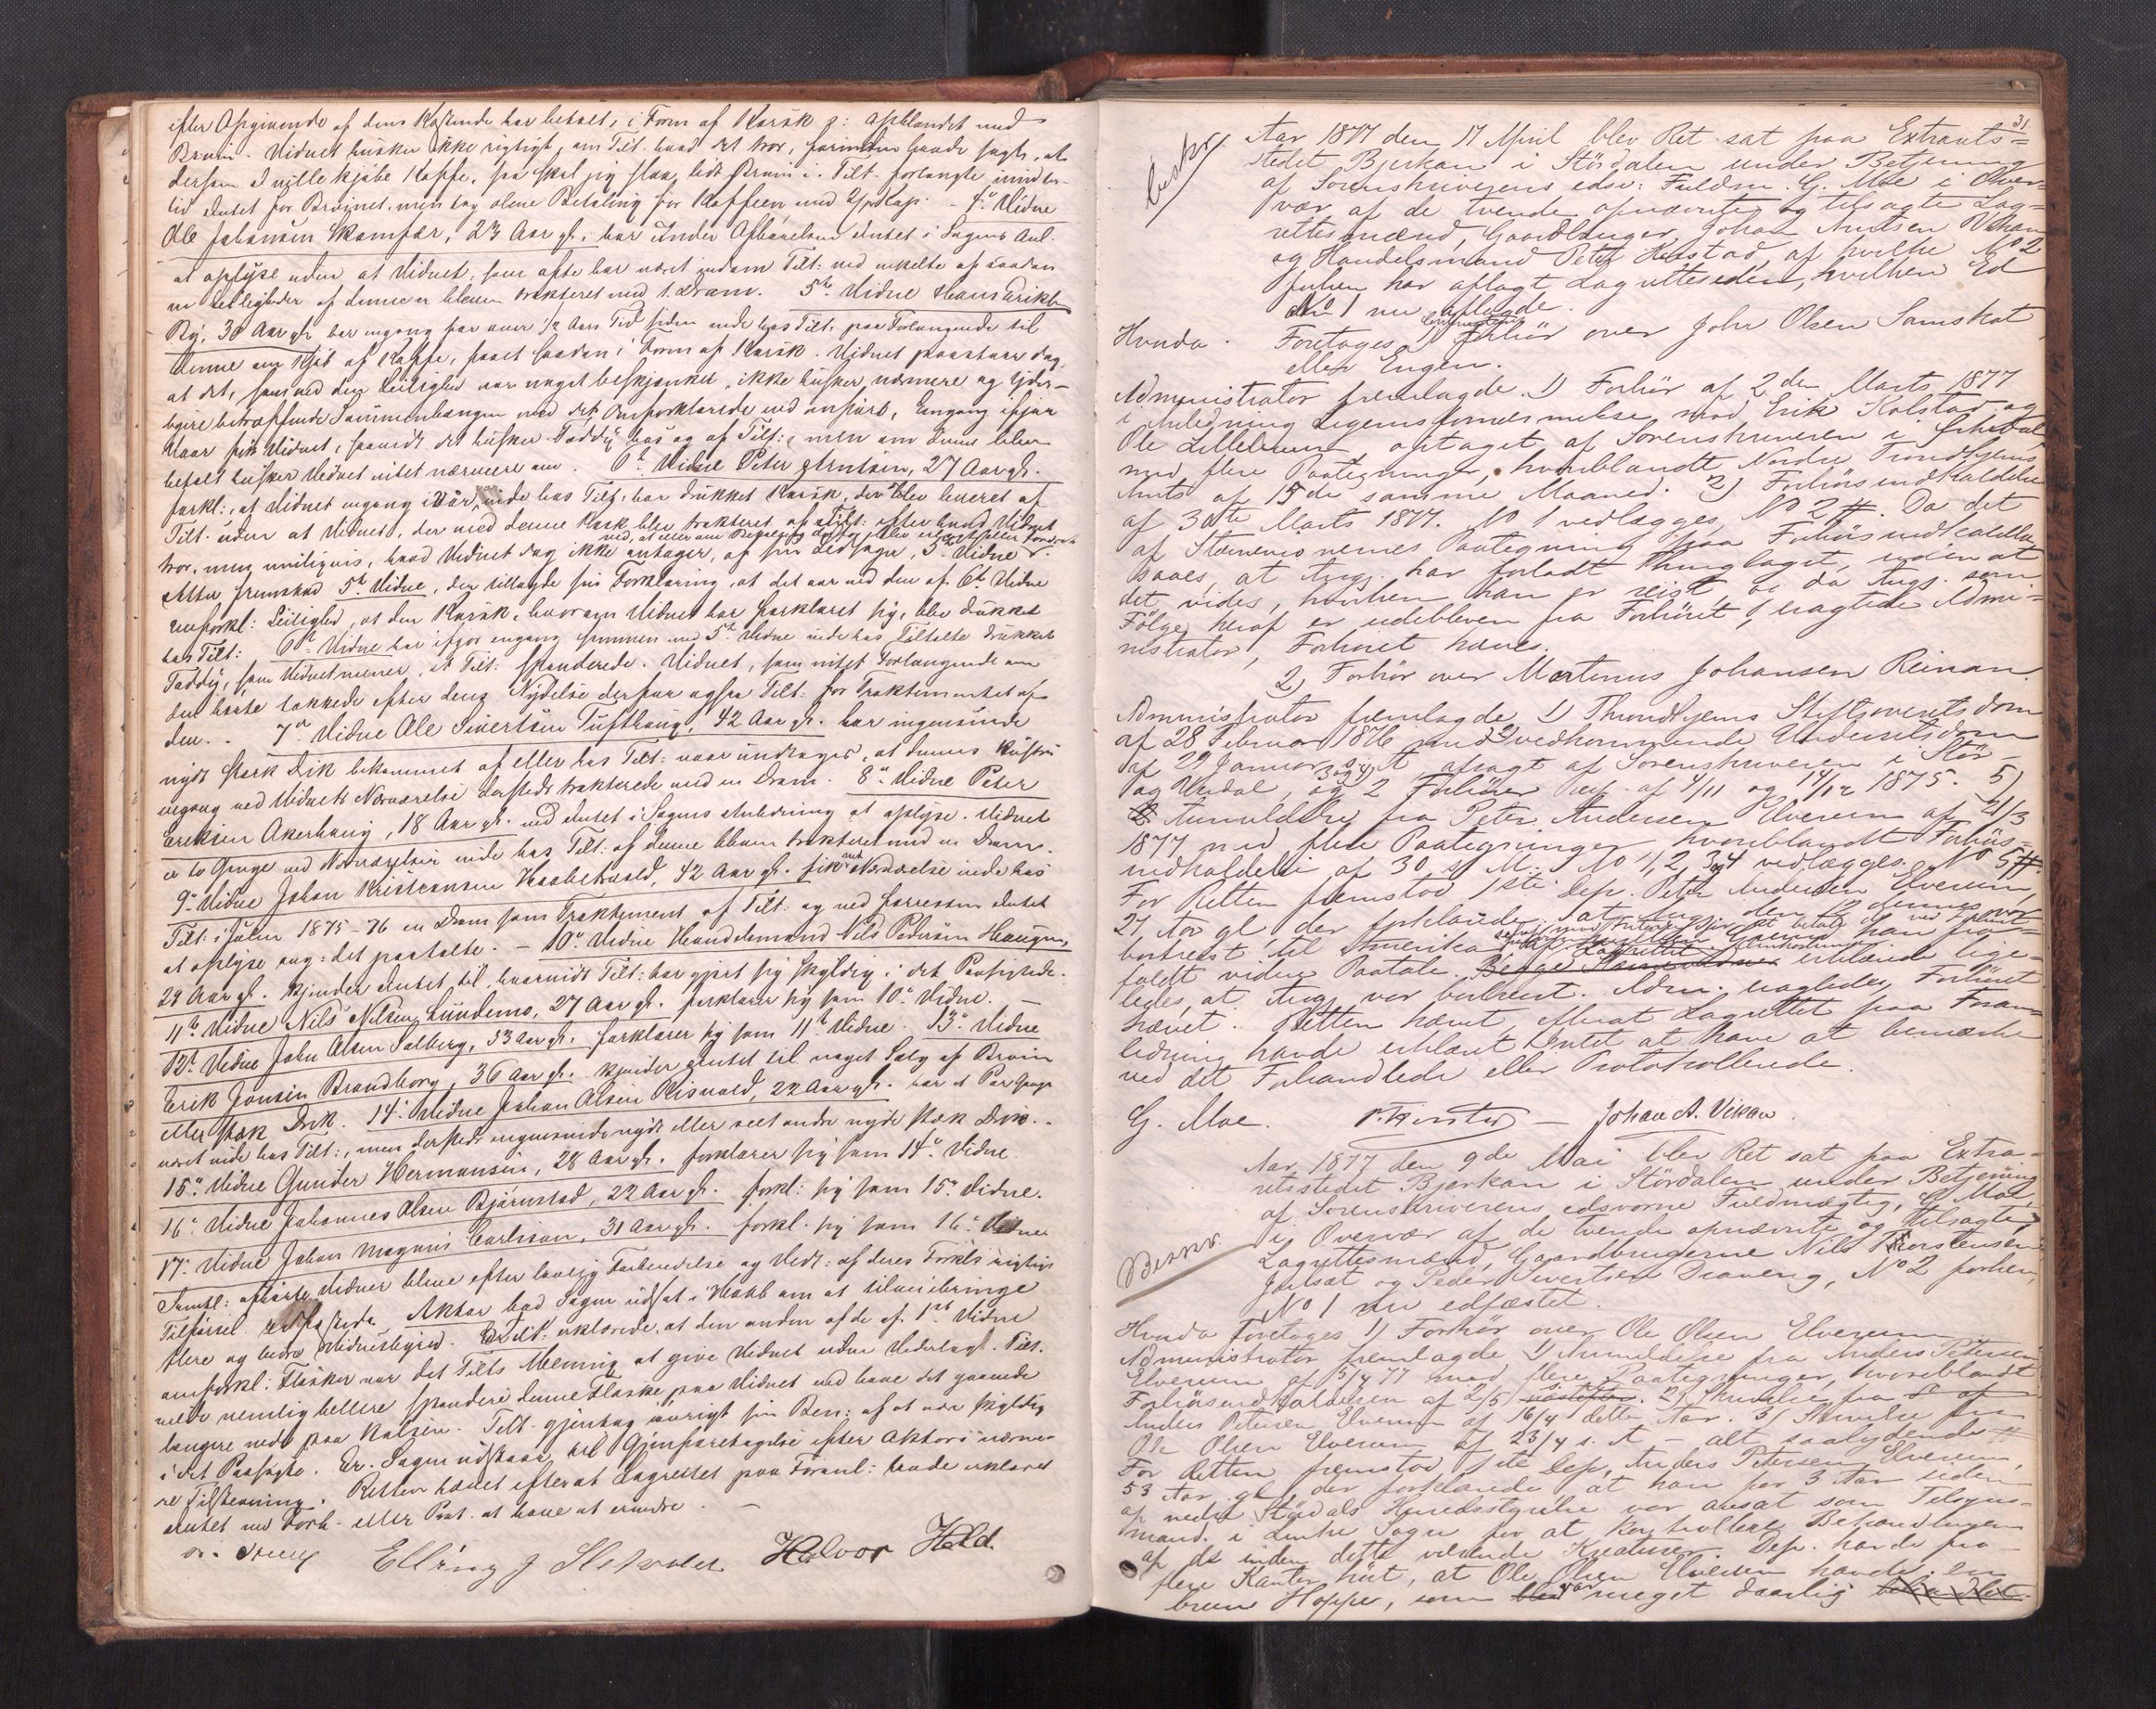 efter Opgivende af dens Kostende har betalt, i Form af Karsk ɔ: opblandet med
Brænv. Vidnet husker ikke rigtigt, om Tilt. hvad det tror, forinden havde sagt, at
dersom I ville kjøbe Kaffe, så skal jeg slaa lidt Brænv. i. Tilt. forlangte imidler-
tid intet for Brævinet, men tog alene Betaling for Kaffeen med 2 ß pr Kop. - 4de Vidne
Ole Johansen Skamfær, 23 Aar gl. har under Afhørelsen intet i Sagens Anl.
at oplyse uden at Vidnet, som ofte har været indom Tilt. ved enkelte af saadan-
ne Leiligheder af denne er bleven trakteret med 1 Dram. 5te Vidne Hans Eriksen
By, 30 Aar gl. har engang for over 1/2 Aars Tid siden inde hos Tilt. paa Forlangende til
denne om Kjøb af Kaffe, faaet saadan i Form af Karsk. Vidnet paastaar dog
at det, som ved den Leilighed var noget beskjænket, ikke husker nærmere og yder-
ligere betræffende Sammenhængen med det Omforklarede end anført. Engang ifjor
Vaar fik Vidnet, saavidt det husker Toddy hos og af Tilt., men om denne blev
betalt husker Vidnet intet nærmere om. 6te Vidne Peter Arntsen, 27 Aar gl.
forkl., at Vidnet engang i Vaar inde hos Tilt. har drukket Karsk, der blev leveret af
Tilt. uden at Vidnet, der med denne Karsk blev trakteret af Tilt. efter hvad Vidnet
tror, men muligvis, hvad Vidnet dog ikke antager, af sin Ledsager, 5te Vidne
Atter fremstod 5te Vidne, der tillagde sin Forklaring, at det var ved den af 6te Vidne
omforkl. Leilighed, at den Karsk, hvorom Vidnet har forklaret sig, blev drukket
hos Tilt. 6te Vidne har ifjor engang sammen med 5te Vidne inde hos Tiltalte drukket
Toddy, som Vidnet mener, at Tilt. spanderede. Vidnet, som intet Forlangende om
den hørte takkede efter dens Nydelse derfor ogsaa Tilt. for Traktementet af
den. - 7de Vidne Ole Sivertsen Tufthaug, 42 Aar gl. har ingensinde
nydt stærk Drik bekommet af eller hos Tilt. naar undtages, at dennes Hustru
engang ved Vidnets Nærværelse dersteds trakterede med en Dram. 8de Vidne Peter
Eriksen Akerhaug, 18 Aar gl. ved intet i Sagens Anledning at oplyse. Vidnet
er to Gange ved Nærværelse inde hos Tilt. af denne bleven trakteret med en Dram.
9de Vidne Johan Kristensen Haabetvold, 42 Aar gl. fik ved Nærværelse inde hos
Tilt. i Julen 1875-76 en Dram som Traktement af Tilt. og ved forresten intet
at oplyse ang. det paatalte. - 10de Vidne Handelsmand Nils Pedersen Haugen,
28 Aar gl. kjender intet til, hvorvidt Tilt. har gjort sig skyldig i det Paasigtede.
11te Vidne Nils Nilsen Lundemo, 27 Aar gl. forklarer sig som 10de Vidne. -
12te Vidne John Olsen Salberg, 33 Aar gl. forklarer sig som 11te Vidne. 13de Vidne
Erik Jonsen Brandborg, 36 Aar gl. kjender intet til noget Salg af Brænv.
eller stærk Drik. 14de Vidne Johan Olsen Risvold, 22 Aar gl. har et Par Gange
været inde hos Tilt., men dersteds ingensinde nydt eller seet andre nyde stærk Drik. -
15de Vidne Gunder Hermansen, 28 Aar gl. forklarer sig som 14de Vidne
16de Vidne Johannes Olsen Bjørnstad, 22 Aar gl. forkl. sig som 15de Vidne.
17de Vidne Johan Magnus Carlsson, 31 Aar gl. forkl. sig som 16de Vidne
Samtl. afhørte Vidner bleve efter lovlig Forberedelse og Vedt. af deres Forkls rigtige
Tilførsel edfæstede. Aktor bad Sagen udsat i Haab om at tilveiebringe
flere og bedre Vidnesbyrd. Tilt. erklærede, at den anden af de af 1ste Vidne
omforkl. Flasker var det Tilts Mening at give Vidnet uden Vederlag. Tilt.
vilde nemlig hellere spandere denne Flaske paa Vidnet end have det gaaende
længere nede paa Kalsen. Tilt. gjentog iøvrigt sin Ben. af at være skyldig
i det Paasigtede. Er. Sagen udstaar til Gjenforetagelse efter Aktors nærme-
re Tilstevning. Retten hævet efterat Lagrettet paa Foranl. havde erklæret
intet ved Forh. eller Prot. at have at erindre. -
Elling J Halvor Hold.
31.
Aar 1877 den 17 April blev Ret sat paa Extrarets-
stedet Bjerkan i Størdalen under Betjening
af Sorenskriverens edsv: Fuldm. G. Moe i Over-
vær af de tvende opnævnte og tilsagte Lag-
rettesmænd, Gaardbruger Johan Arntsen Vikan
og Handelsmand Peter Hirstad, af hvilke No 2
forhen har aflagt Lagretteseden, hvilken Ed
No 1 nu aflagde.
Hvorda. Foretages 1) Forhør over John Olsen Samskot
eller Engen.
Administrator fremlagde 1) Forhør af 2den Marts 1877
i Anledning Legemsfornærmelse mod Erik Kolstad og
Ole Lillebuan optaget af Sorenskriveren i
med flere Paategninger, hvoriblandt Nordre Trondhjems
Amts af 15de samme Maaned. 2) Forhørsindkaldelse
af 30te Marts 1877. No 1 vedlægges, No 2 #. Da det
af Stævnevidnernes Paategning paa Forhørsindkaldelsen
saaes, at Angj. har forladt Thinglaget, uden at
det vides, hvorhen han er reist og da Angj. som
Følge heraf er udebleven fra Forhøret, fragtede Admi-
nistrator, Forhøret hæves.
2) Forhør over Martinus Johansen Reinan.
Administrator fremlagde 1) Throndhjems Stiftsoverretsdom
af 28 Februar 1876 med 2) vedkommende Underretsdom
af 29 Januar s. A. afsagt af Sorenskriveren i Stør-
og Værdal, 3 og 4) 2 Forhører resp. af 4/11 og 14/12 1875. 5)
Anmeldelse fra Peter Andersen Elverum af 21/3
1877 med flere Paategninger, hvoriblandt Forhørs-
indkaldelse af 30 s. M. No 1, 2, 3, 4 vedlægges. No 5 #.
For Retten fremstod 1ste Dep. Peter Andersen Elverum,
21 Aar gl. der forklarede, at
bortreist til Amerika
faldt videre Paatale. erklærede lige-
ledes, at Angj. var bortreist. Adm. fragtede, Forhøret
hævet. Retten hævet, efterat Lagrettet paa Foran-
ledning havde erklæret Intet at have at bemærke
ved det Forhandlede eller Protokollerede.
G. Moe. P. Hirstad - Johan A. Vikan.
Aar 1877 den 9de Mai blev Ret sat paa Extra-
retsstedet Bjerkan i Størdalen under Betjening
af Sorenskriverens edsvorne Fuldmægtig, G. Moe,
i Overvær af de tvende opnævnte og tilsagte
Lagrettesmænd, Gaardbrugerne Nils Thorstensen
Julsæt og Peder Sivertsen Draveng, No 2 forhen,
No 1 nu edfæstet.
Hvorda foretages 1) Forhør over Ole Olsen Elverum
Administrator fremlagde 1) Anmeldelse fra Anders Petersen
Elverum af 5/4 77 med flere Paategninger, hvoriblandt
Forhørsindkaldelsen af 2/5. 2) Skrivelse fra
Anders Petersen Elverum af 16/4 dette Aar. 3) Skrivelse fra
Ole Olsen Elverum af 23/4 s. A. - alt saalydende #
For Retten fremstod 1ste Dep. Anders Petersen Elverum,
53 Aar gl. der forklarede at han for 3 Aar siden
af nedre Størdals Herredsstyrelse var ansat som Tilsyns-
mand i Lænke Sogn for at kontrollere Behandlingen
af de inden dette værende Kreaturer. Dep. havde fra
flere Kanter hørt, at Ole Olsen Elverum havde en
brun Hoppe, som var meget daarlig